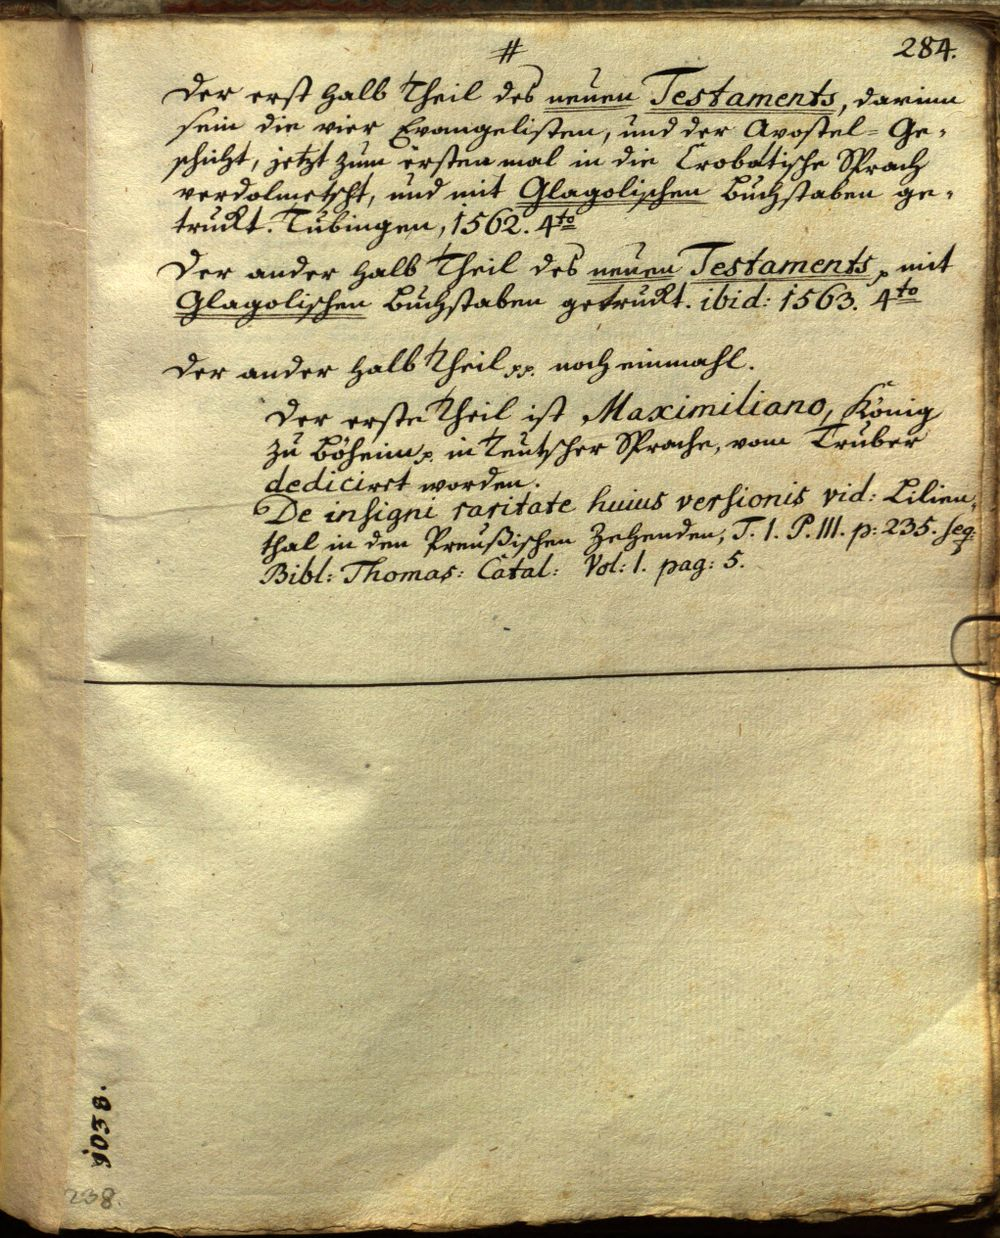 #
284.
Der erst halb Theil des neuen Testaments, darinn
sein die vier Evangelisten, und der Apostel-Ge-
schicht, jetzt zum ersten mal in die Crobatische Sprach
verdolmetscht, und mit Glagolischen Buchstaben ge-
truckt. Tübingen, 1562. 4to
Der ander halb Theil des neuen Testaments, mit
Glagolischen Buchstaben getruckt. ibid: 1563. 4to
Der ander halb Theil pp. noch einmahl.
Der erste Theil ist Maximiliano, König
zu Böheim p. in Teutscher Sprache, vom Truber
dediciret worden.
De insigni raritate huius versionis vid: Lilien-
thal in den Preußischen Zehenden, T. 1. P. III. p: 235. seq.
Bibl: Thomas: Catal: Vol: 1. pag: 5.
9038.
238.